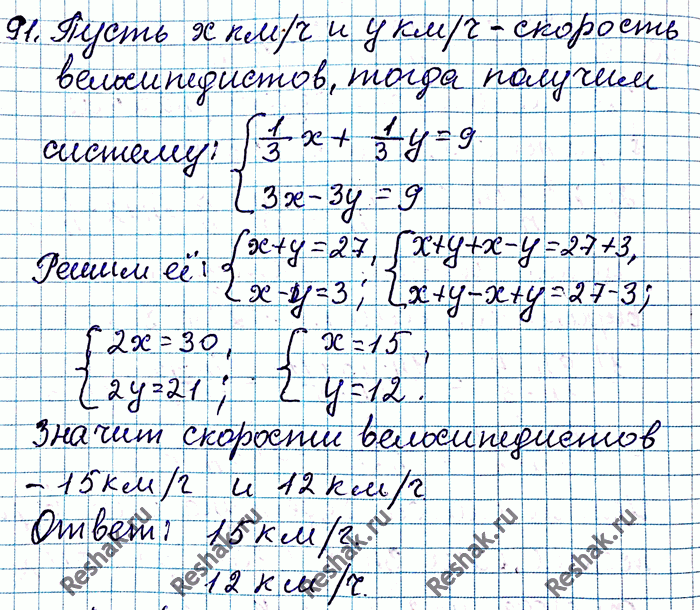 91. Пусть x км/ч и y км/ч - скорость
велосипедистов, тогда получим
систему: { 1/3 x + 1/3 y = 9
3x - 3y = 9
Решим её: { x+y=27, { x+y+x-y=27+3,
x-y=3; x+y-x+y=27-3;
{ 2x=30, { x=15,
2y=21; y=12.
Значит скорости велосипедистов
- 15 км/ч и 12 км/ч
Ответ: 15 км/ч
12 км/ч.
Reshak.ru Reshak.ru Reshak.ru Reshak.ru